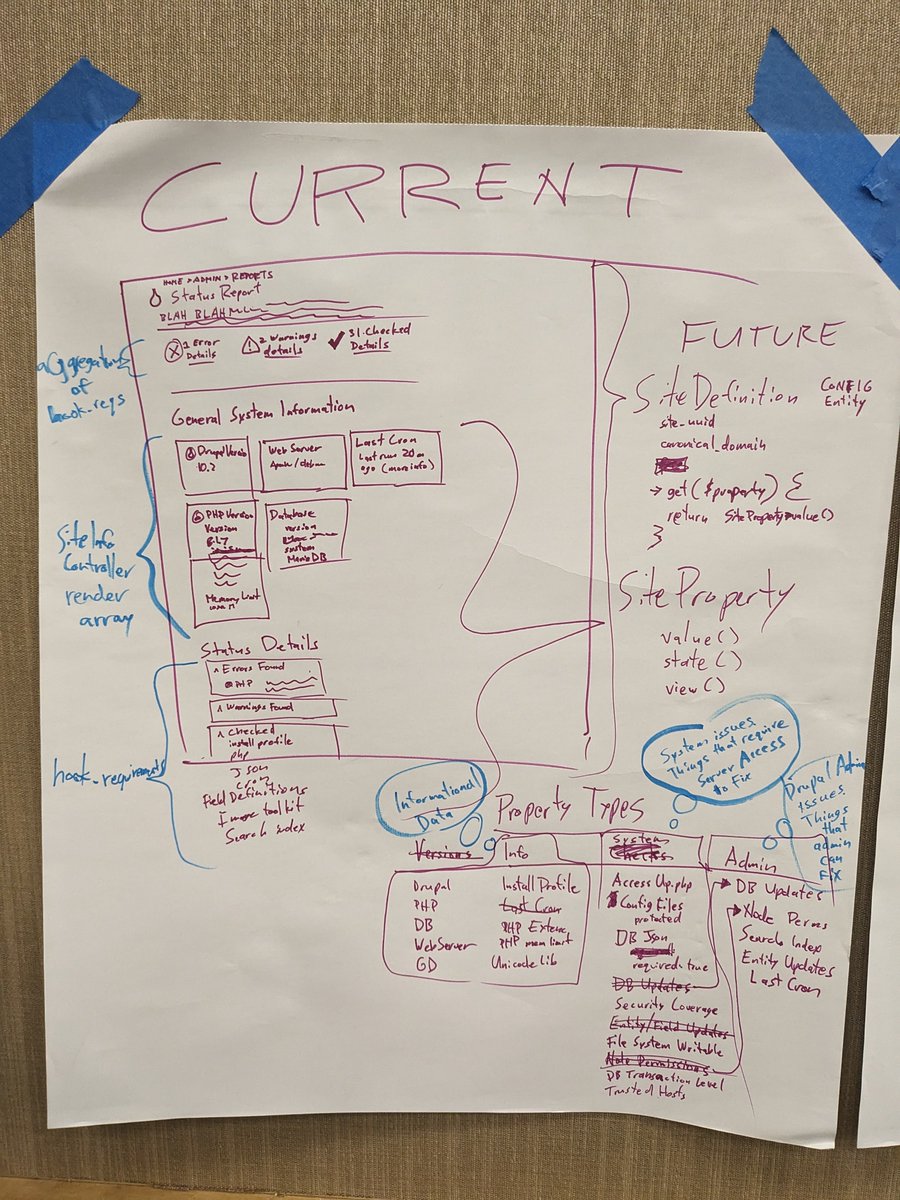 CURRENT
HOME > ADMIN > REPORTS
Status Report
BLAH BLAH
1 Error
Details
2 Warnings
details
31 Checked
Details
aggregation
of
hook_reqs
General System Information
Drupal Version
10.2
Web Server
Last Cron
Last run 20m
ago (more info)
PHP Version
Version
8.1.7
Memory Limit
Database
version
system
MariaDB
Site Info
Controller
render
array
Status Details
^ Errors Found
PHP
^ Warnings Found
^ Checked
install profile
php
Json
cron
Field Definitions
Image toolkit
Search index
hook_requirements
FUTURE
SiteDefinition
CONFIG
Entity
site_uuid
canonical_domain
→ get($property) {
return SiteProperty→value()
}
SiteProperty
value()
state()
view()
System issues
Things that require
Server Access
to Fix
Drupal Admin
Issues
Things
that
admin
can
FIX
Informational
Data
Property Types
Versions
Info
System
Checks
Admin
Drupal
PHP
DB
WebServer
GD
Install Profile
Last Cron
PHP Extenc
PHP mem limit
Unicode Lib
Access Up.php
Config Files
protected
DB Json
required=true
DB Updates
Security Coverage
Entity/Field Updates
File System Writable
Node Permissions
DB Transaction Level
Trusted Hosts
DB Updates
Node Perms
Search Index
Entity Updates
Last Cron